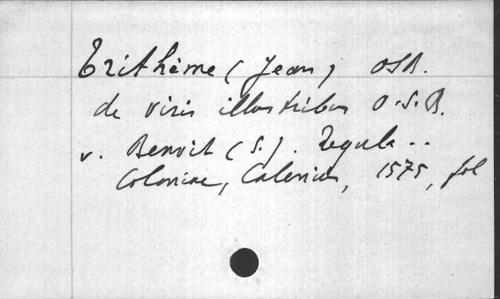 Trithème (Jean) OSB.
de viris illustribus O.S.B.
v. Benoit (S.). Regula..
Coloniae, Calenius, 1575, fol